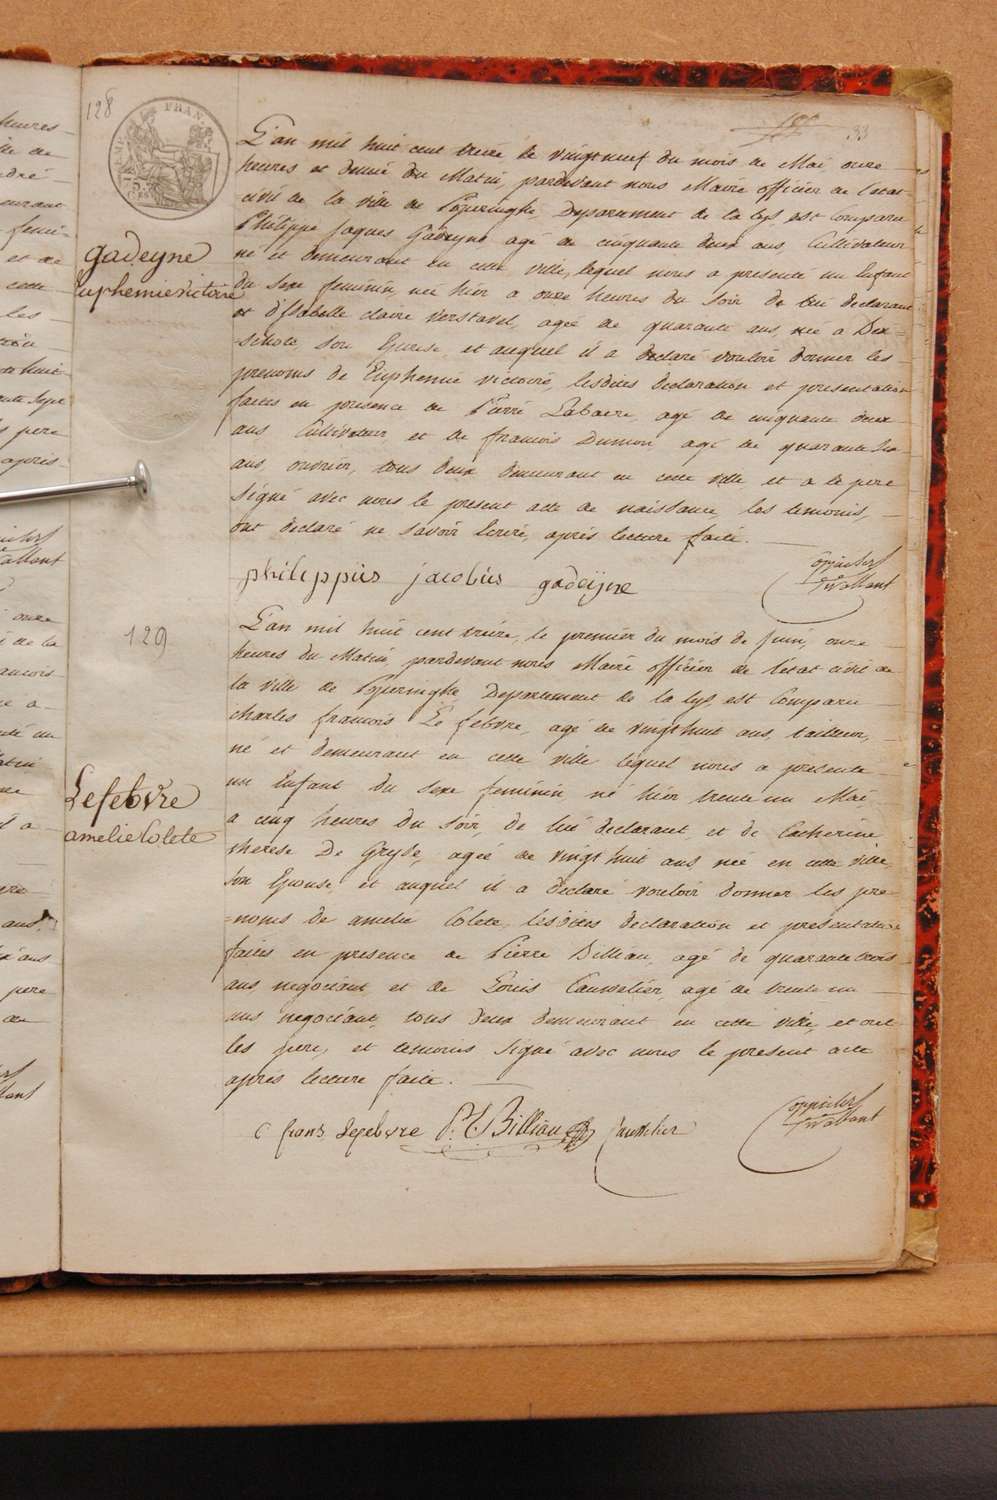 128
33
gadeyne
Euphemie victoire
L'an mil huit cent treize le vingt neuf du mois de Mai onze
heures et demie du Matin, pardevant nous Maire officier de l'etat
civil de la ville de Poperinghe, Departement de la Lys, est Comparu
Philippe Jaques Gadeyne agé de cinquante deux ans, Cultivateur
né et demeurant en cette ville, lequel nous a presenté un Enfant
du sexe feminin, née hier a onze heures du soir de lui declarant
et d'Isabelle claire Verstavel, agée de quarante ans, née a Dix-
=schote, son Epouse, et auquel il a declaré vouloir donner les
prenoms de Euphemie victoire, lesdites declaration et presentation
faites en presence de Pierre Labaere, agé de cinquante deux
ans Cultivateur, et de francois Dumon, agé de quarante six
ans, ouvrier, tous deux demeurant en cette ville et a le pere
signé avec nous le present acte de naissance, les temoins
ont declaré ne savoir Ecrire, après lecture faite.
philippus jacobus gadeijne
129
Lefebvre
amelie Colete
L'an mil huit cent treize, le premier du mois de Juin, onze
heures du Matin, pardevant nous Maire officier de l'etat civil de
la ville de Poperinghe Departement de la Lys, est Comparu
charles francois Le febvre, agé de vingt huit ans, tailleur,
né et demeurant en cette ville lequel nous a presenté
un Enfant du sexe feminin né hier trente un Mai
a cinq heures du soir, de lui declarant et de Catherine
therese De Gryse, agée de vingt huit ans, née en cette ville
son Epouse, et auquel il a declaré vouloir donner les pre=
=noms de amelie Colete, lesdites declaration et presentation
faites en presence de Pierre Billiau, agé de quarante trois
ans negociant, et de Louis Causselier, agé de trente un
ans negociant, tous deux demeurant en cette ville, et ont
les pere, et temoins signé avec nous le present acte
après lecture faite.
c frans Lefebvre P. Billiau